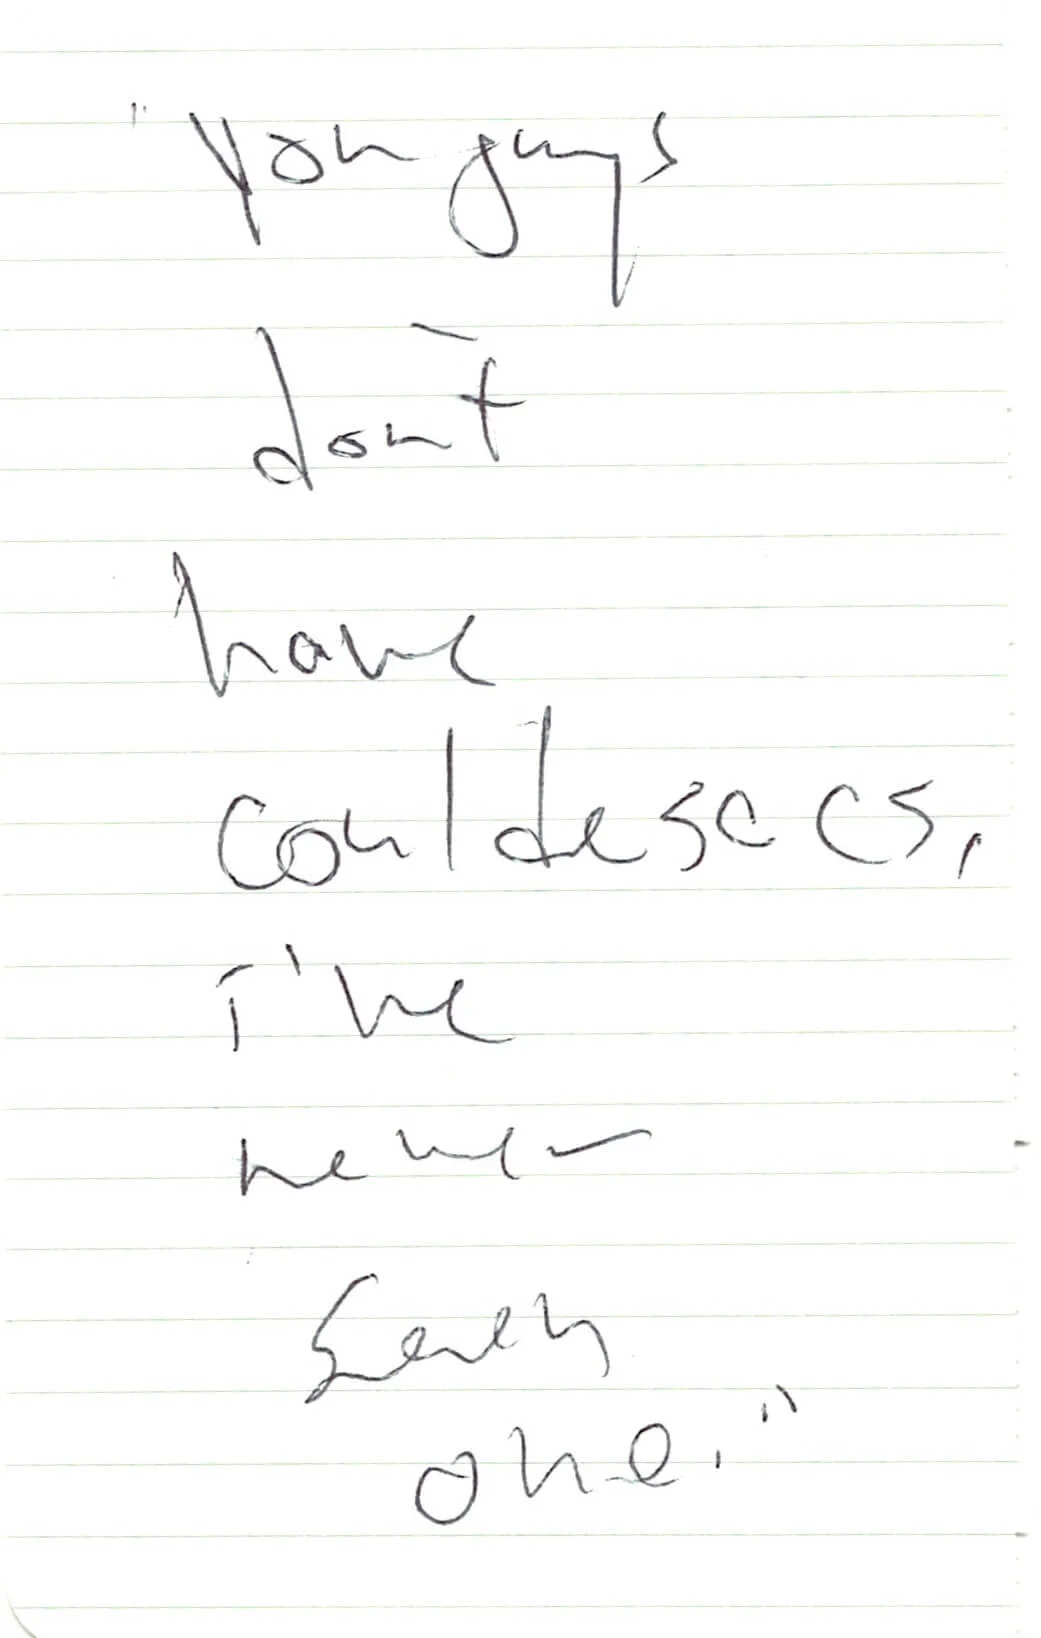 "You guys
don't
have
couldesacs,
I've
never
seen
one."